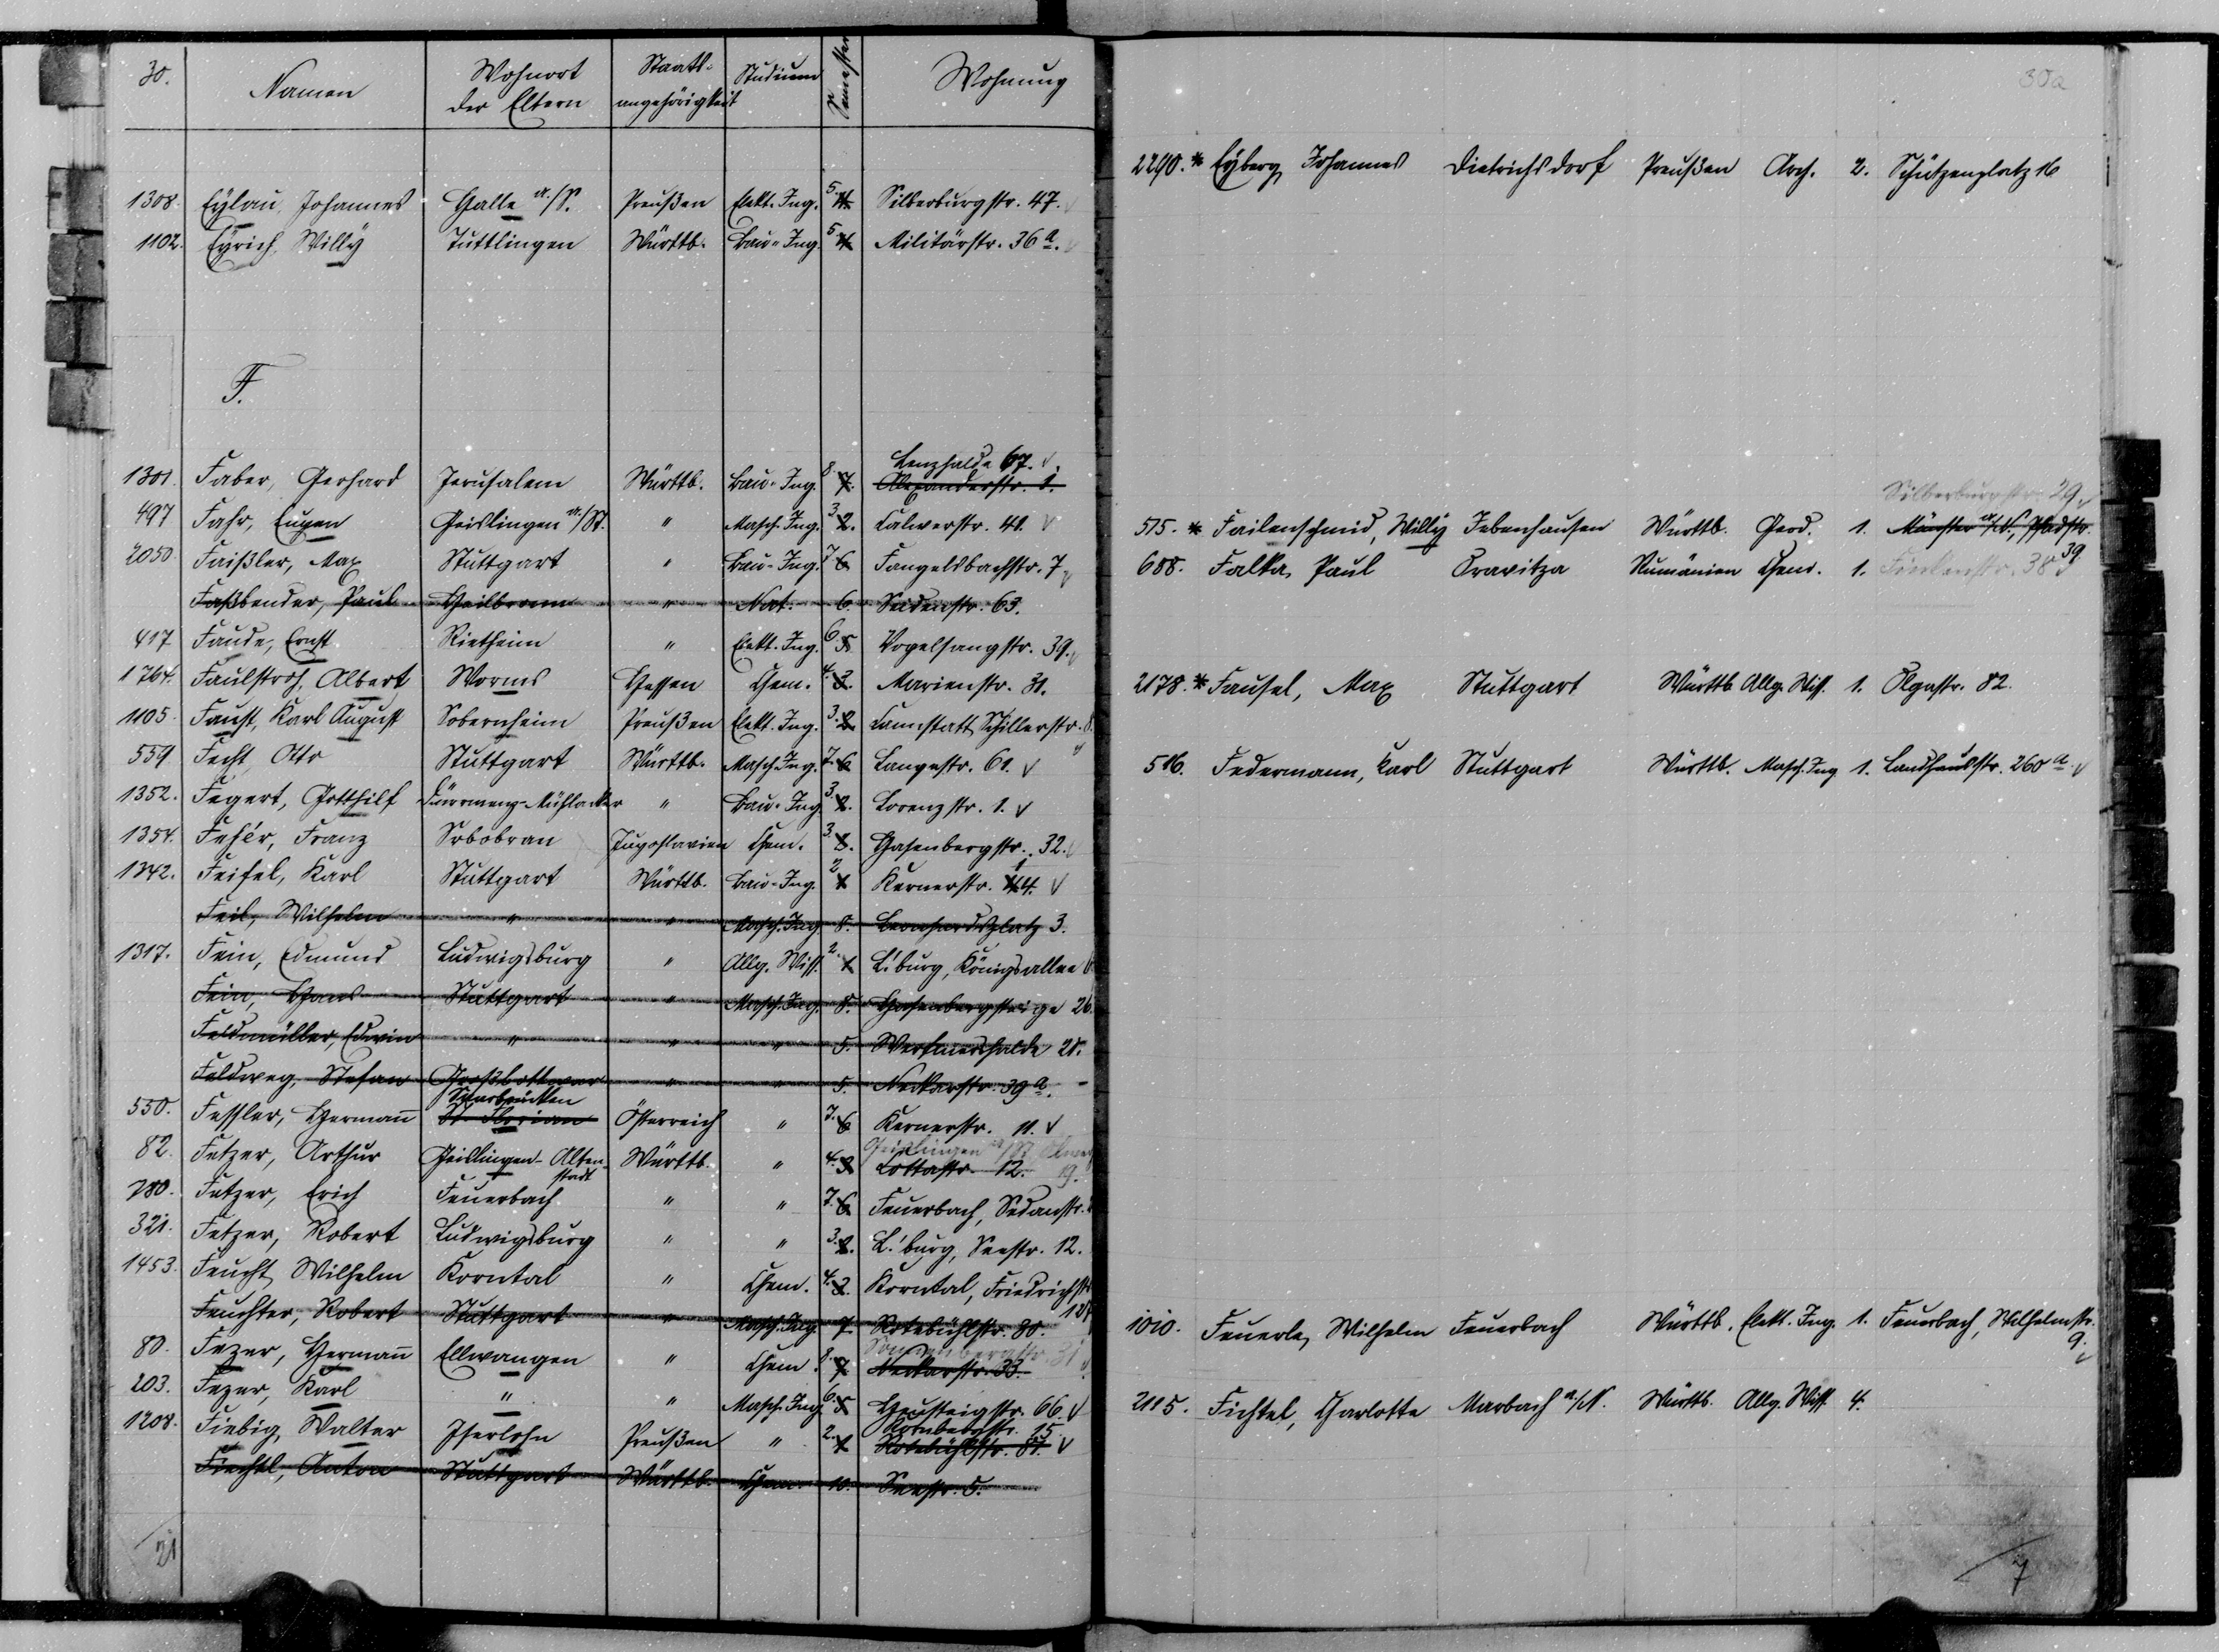 30.
Namen
Wohnort der Eltern
Staatsangehörigkeit
Studium
Semester
Wohnung
1308. Eylau, Johannes Halle a./S. Preußen Elekt. Ing. 5. 4. Silberburgstr. 47.
1102. Eyrich, Willy Tuttlingen Württb. Bau-Ing. 5. 4. Militärstr. 36a.
F.
Lenzhalde 67.
1301. Faber, Gerhard Jerusalem Württb. Bau-Ing. 8. 7. Alexanderstr. 1.
497 Fahr, Eugen Geislingen a/St. " Masch. Ing. 3. 2. Calwerstr. 41.
2050. Faißler, Max Stuttgart " Bau-Ing. 7. 6. Fangelsbachstr. 7
Faßbender, Paul Heilbronn " Nat. 6. Seidenstr. 63.
417 Faude, Ernst Rietheim " Elekt. Ing. 6. 5. Vogelsangstr. 39.
1764. Faulstroh, Albert Worms Hessen Chem. 4. 3. Marienstr. 31.
1105. Faust, Karl August Sobernheim Preußen Elekt. Ing. 3. 2. Cannstatt, Schillerstr. 8.
559. Fecht, Otto Stuttgart Württb. Masch. Ing. 7. 6. Langestr. 61.
1352. Fegert, Gotthilf Dürrmenz-Mühlacker " Bau-Ing. 3. 2. Lorenzstr. 1.
1354. Fehér, Franz Srbobran Jugoslavien Chem. 3. Hasenbergstr. 32.
1342. Feifel, Karl Stuttgart Württb. Bau-Ing. 2 1 Kernerstr. 14.
Feil, Wilhelm " " Masch. Ing. 8. Leonhardsplatz 3.
1317. Fein, Edmund Ludwigsburg " Allg. Wiss. 2. 1. L.burg, Königsallee
Fein, Hans Stuttgart " Masch. Ing. 8. Hasenbergsteige 26.
Feldmüller, Edwin " " " 5. Werfmershalde 20.
Feldweg, Stefan Großbottwar " " 5. Neckarstr. 39a.
Saarbrücken
550. Fessler, Hermann St. Florian Österreich " 7. 6 Kernerstr. 11.
Geislingen a/St.
82. Fetzer, Arthur Geislingen-Altenstadt Württb. " 4. 3. Cottastr. 12. 19.
780. Fetzer, Erich Feuerbach " " 7. 6. Feuerbach, Sedanstr.
321. Fetzer, Robert Ludwigsburg " " 3. 2. L.burg, Seestr. 12.
1453. Feucht, Wilhelm Korntal " Chem. 4. 3. Korntal, Friedrichstr.
Feuchter, Robert Stuttgart " Masch. Ing. 7. Rotebühlstr. 80.
Sonnenbergstr. 31
80. Fezer, Hermann Ellwangen " Chem. 8. 7. Neckarstr. 33.
203. Fezer, Karl " " Masch. Ing. 6. 5. Heusteigstr. 66.
1208. Fiebig, Walter Iserlohn Preußen " 2. 1 Rotebühlstr. 81.
Fiechtl, Anton Stuttgart Württb. Chem. 10. Seestr. 5.
21
30a
2290. * Eyberg, Johannes Dietrichsdorf Preußen Arch. 2. Schützenplatz 16
Silberburgstr. 29.
515. * Failenschmid, Willy Jebenhausen Württb. Geod. 1. Münster a/N,
688. Falka, Paul Oravitza Rumänien Chem. 1. Finkenstr. 38 39
2178. * Fausel, Max Stuttgart Württb. Allg. Wiss. 1. Olgastr. 82.
516. Federmann, Karl Stuttgart Württb. Masch. Ing. 1. Landhausstr. 260a.
1010. Feuerle, Wilhelm Feuerbach Württb. Elekt. Ing. 1. Feuerbach, Wilhelmstr. 9.
2115. Fichtel, Charlotte Marbach a./N. Württb. Allg. Wiss. 4.
7